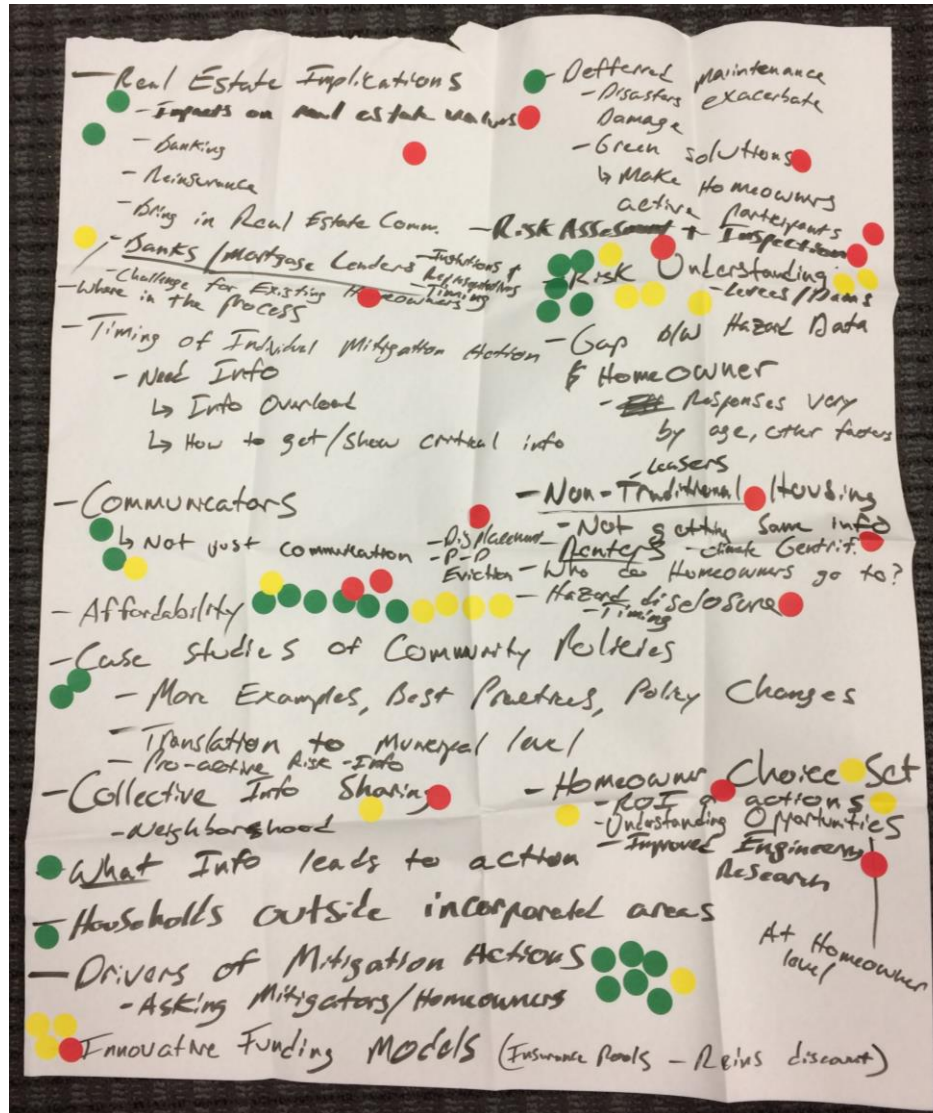 - Real Estate Implications
- Impacts on real estate values
- Banking
- Reinsurance
- Bring in Real Estate Comm.
- Banks/Mortgage Lenders
- Timing
- Challenge for Existing Homeowners
- Where in the process
- Timing of Individual Mitigation Action
- Need Info
↳ Info Overload
↳ How to get/show critical info
- Communicators
↳ Not just commuication
- Displacement
- P-P
Eviction
- Affordability
- Case Studies of Community Policies
- More Examples, Best Practices, Policy Changes
- Translation to Municipal level
- Pro-active Risk-Info
- Collective Info Sharing
- Neighborshood
- What Info leads to action
- Households outside incorporated areas
- Drivers of Mitigation Actions
- Asking Mitigators/Homeowners
- Innovative Funding Models (Insurance Pools - Reins discount)
- Defferred Maintenance
- Disasters exacerbate
Damage
- Green solutions
↳ Make Homeowners
active participants
- Risk Assessment + Inspection
- Risk Understanding
- Levees/Dams
- Gap b/w Hazard Data
& Homeowner
- Responses vary
by age, other factors
- Leasers
- Non-Traditional Housing
- Not getting same info
- Renters - climate Gentrif.
- Who do Homeowners go to?
- Hazard disclosure
- Timing
- Homeowner Choice Set
- ROI of actions
- Understanding Opportunities
- Improved Engineering
Research
At Homeowner
level